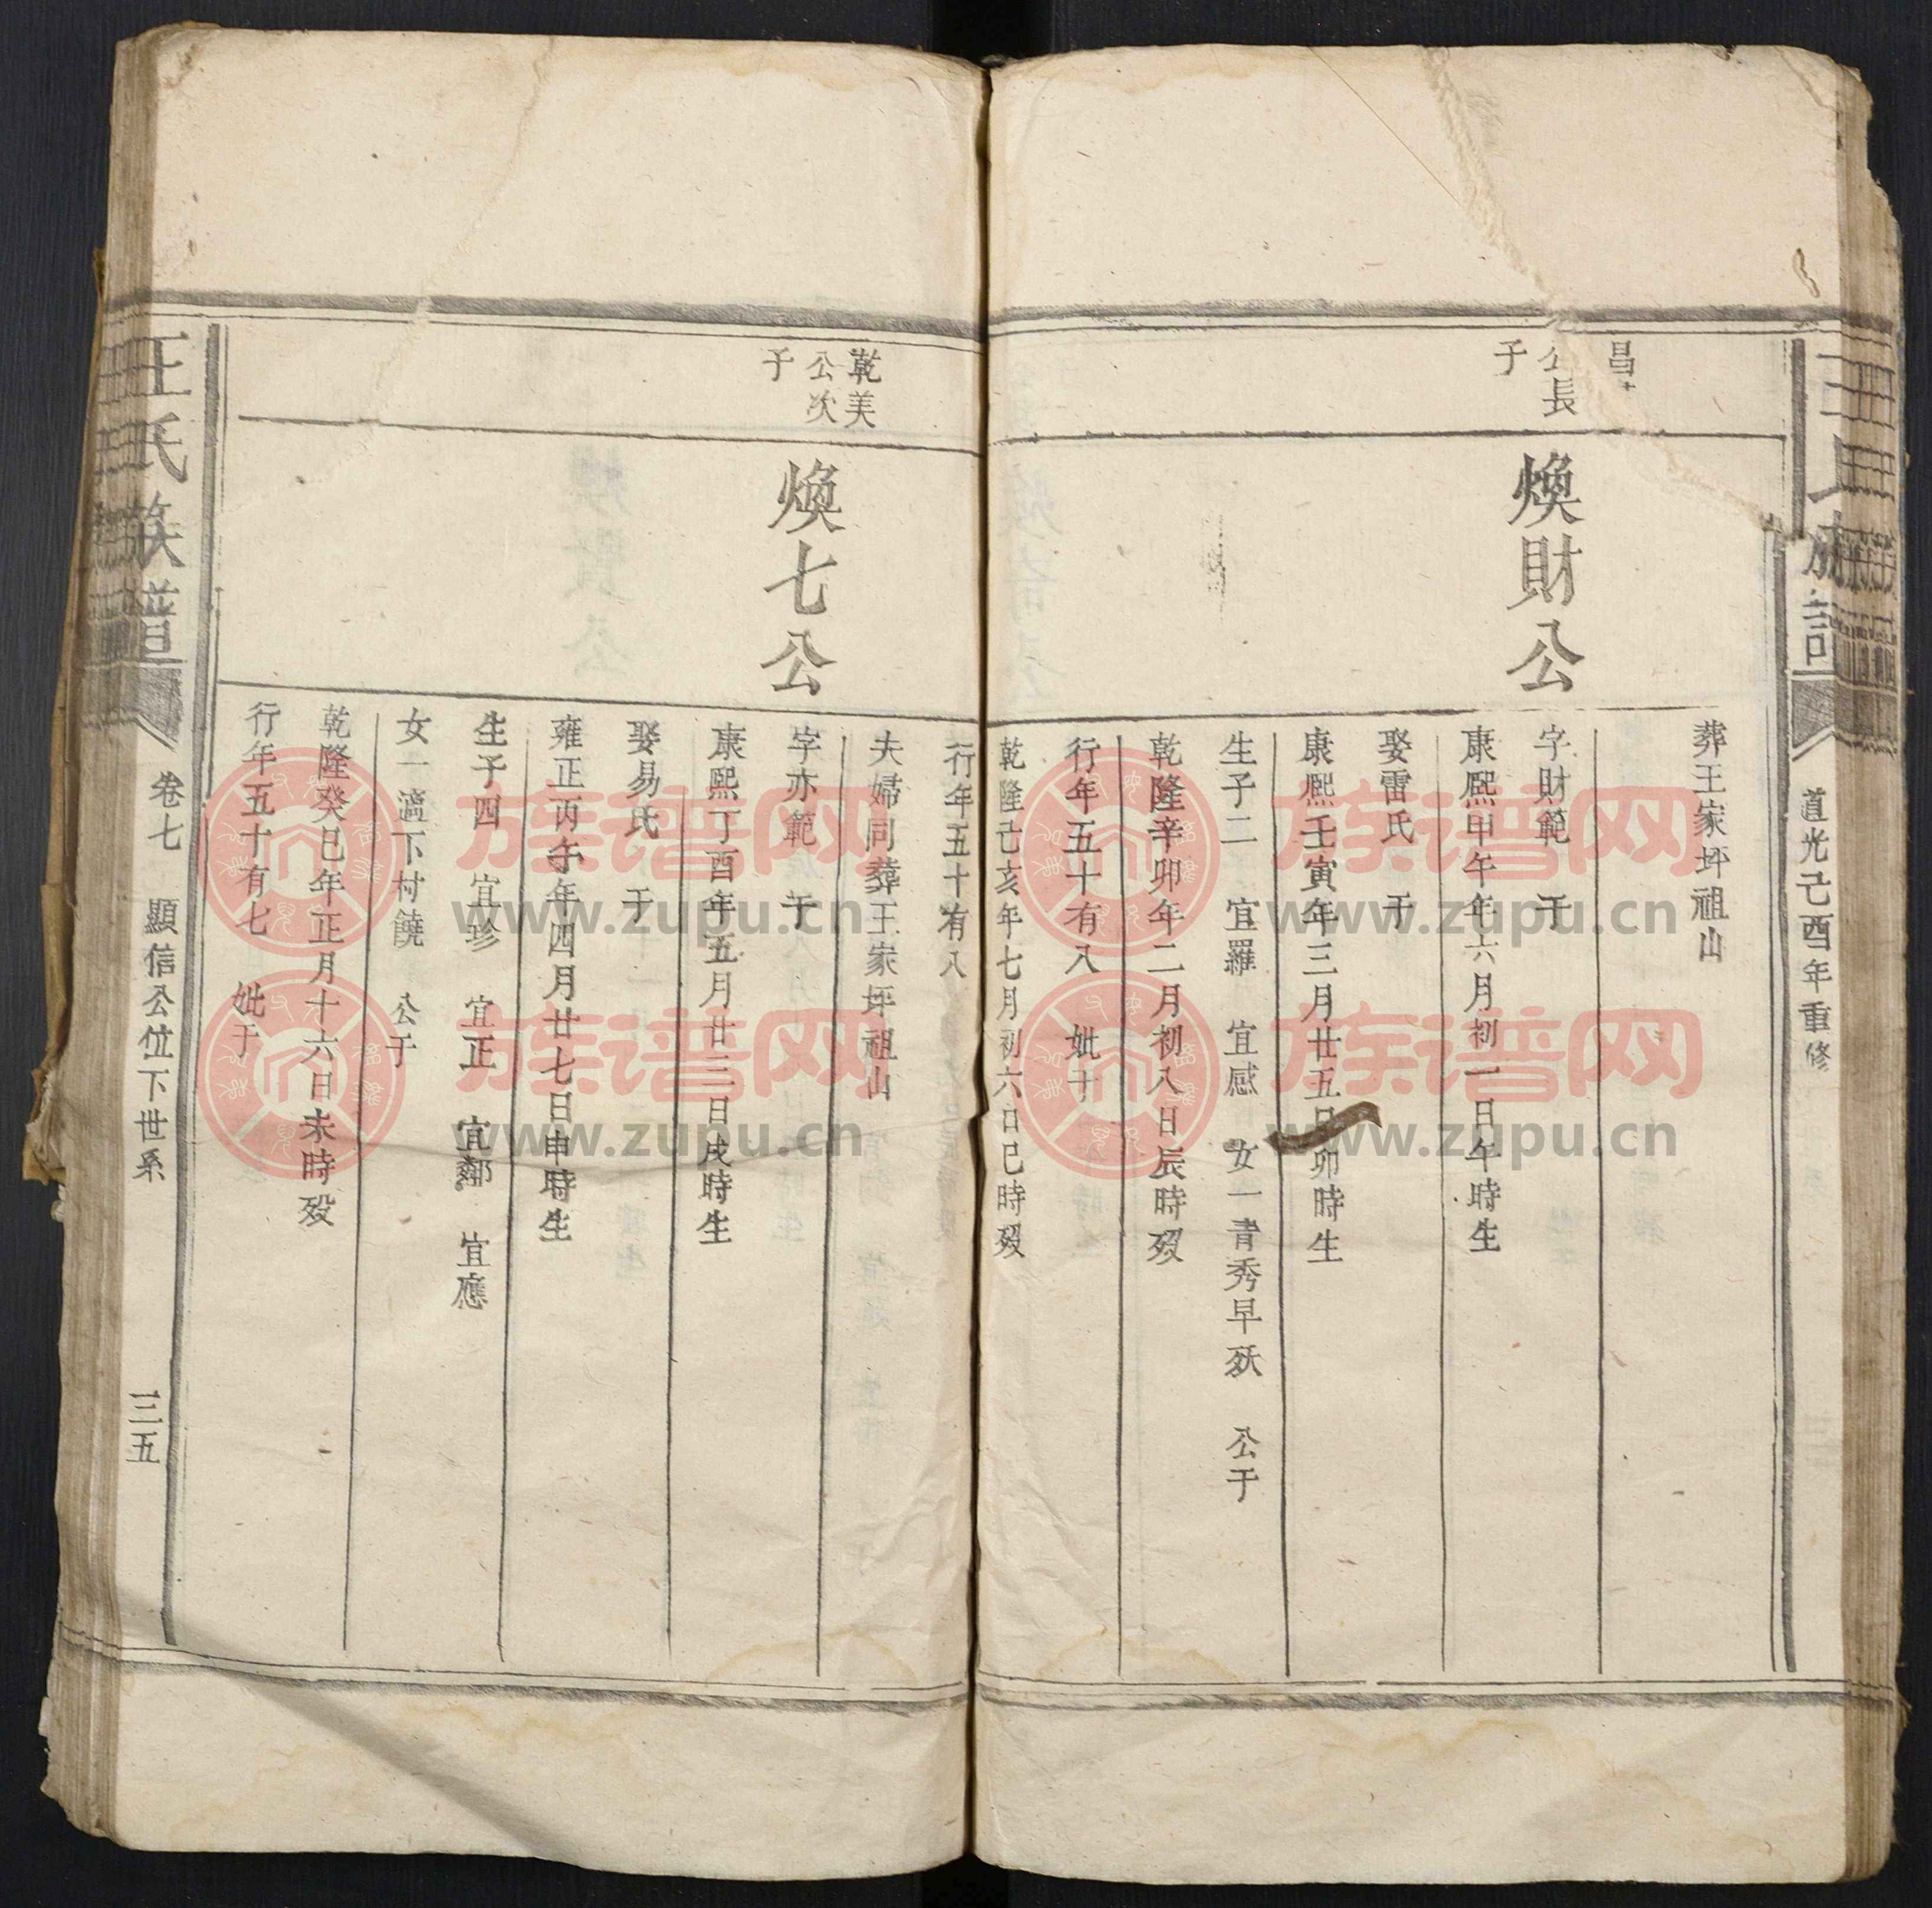 道光己酉年重修
葬王家坪祖山
公長
子
煥財公
字財範 于
康熙甲午年六月初一日午時生
娶雷氏 于
康熙壬寅年三月廿五日卯時生
生子二 宜羅 宜感 女一青秀早殀 公于
乾隆辛卯年二月初八日辰時歿
行年五十有八 妣于
乾隆己亥年七月初六日巳時歿
行年五十有八
夫婦同葬王家坪祖山
乾美
公次
子
煥七公
字亦範 于
康熙丁酉年五月廿三日戌時生
娶易氏 于
雍正丙午年四月廿七日申時生
生子四 宜珍 宜正 宜鄰 宜應
女一適下村饒 公于
乾隆癸巳年正月十六日未時歿
行年五十有七 妣于
王氏族譜 卷七 顯信公位下世系 三五
族谱网
www.zupu.cn
族谱网
www.zupu.cn
族谱网
www.zupu.cn
族谱网
www.zupu.cn